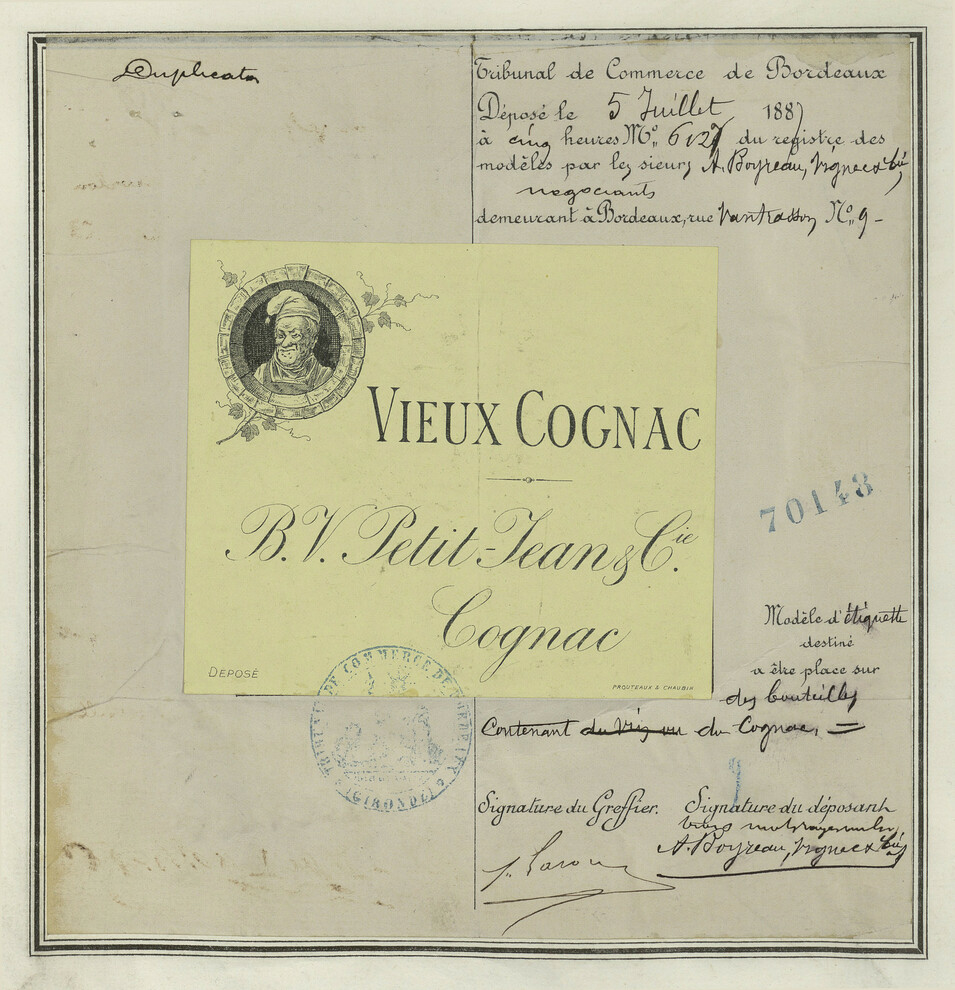 Duplicata
Tribunal de Commerce de Bordeaux
Déposé le 5 Juillet 1887
à cinq heures N° du registre des
modèles par les sieurs A. Boyreau, Vignes & Cie
negociants
demeurant à Bordeaux, rue Vantrasson N° 9 -
VIEUX COGNAC
B.V. Petit-Jean & Cie.
Cognac
DEPOSÉ
PROUTEAUX & CHAUBIN
70148
Modèle d'étiquette
destiné
a être place sur
des bouteilles
Contenant du Cognac. =
TRIBUNAL DE COMMERCE DE BORDEAUX
(GIRONDE)
Signature du Greffier. Signature du déposant
A. Boyreau, Vignes & Cie